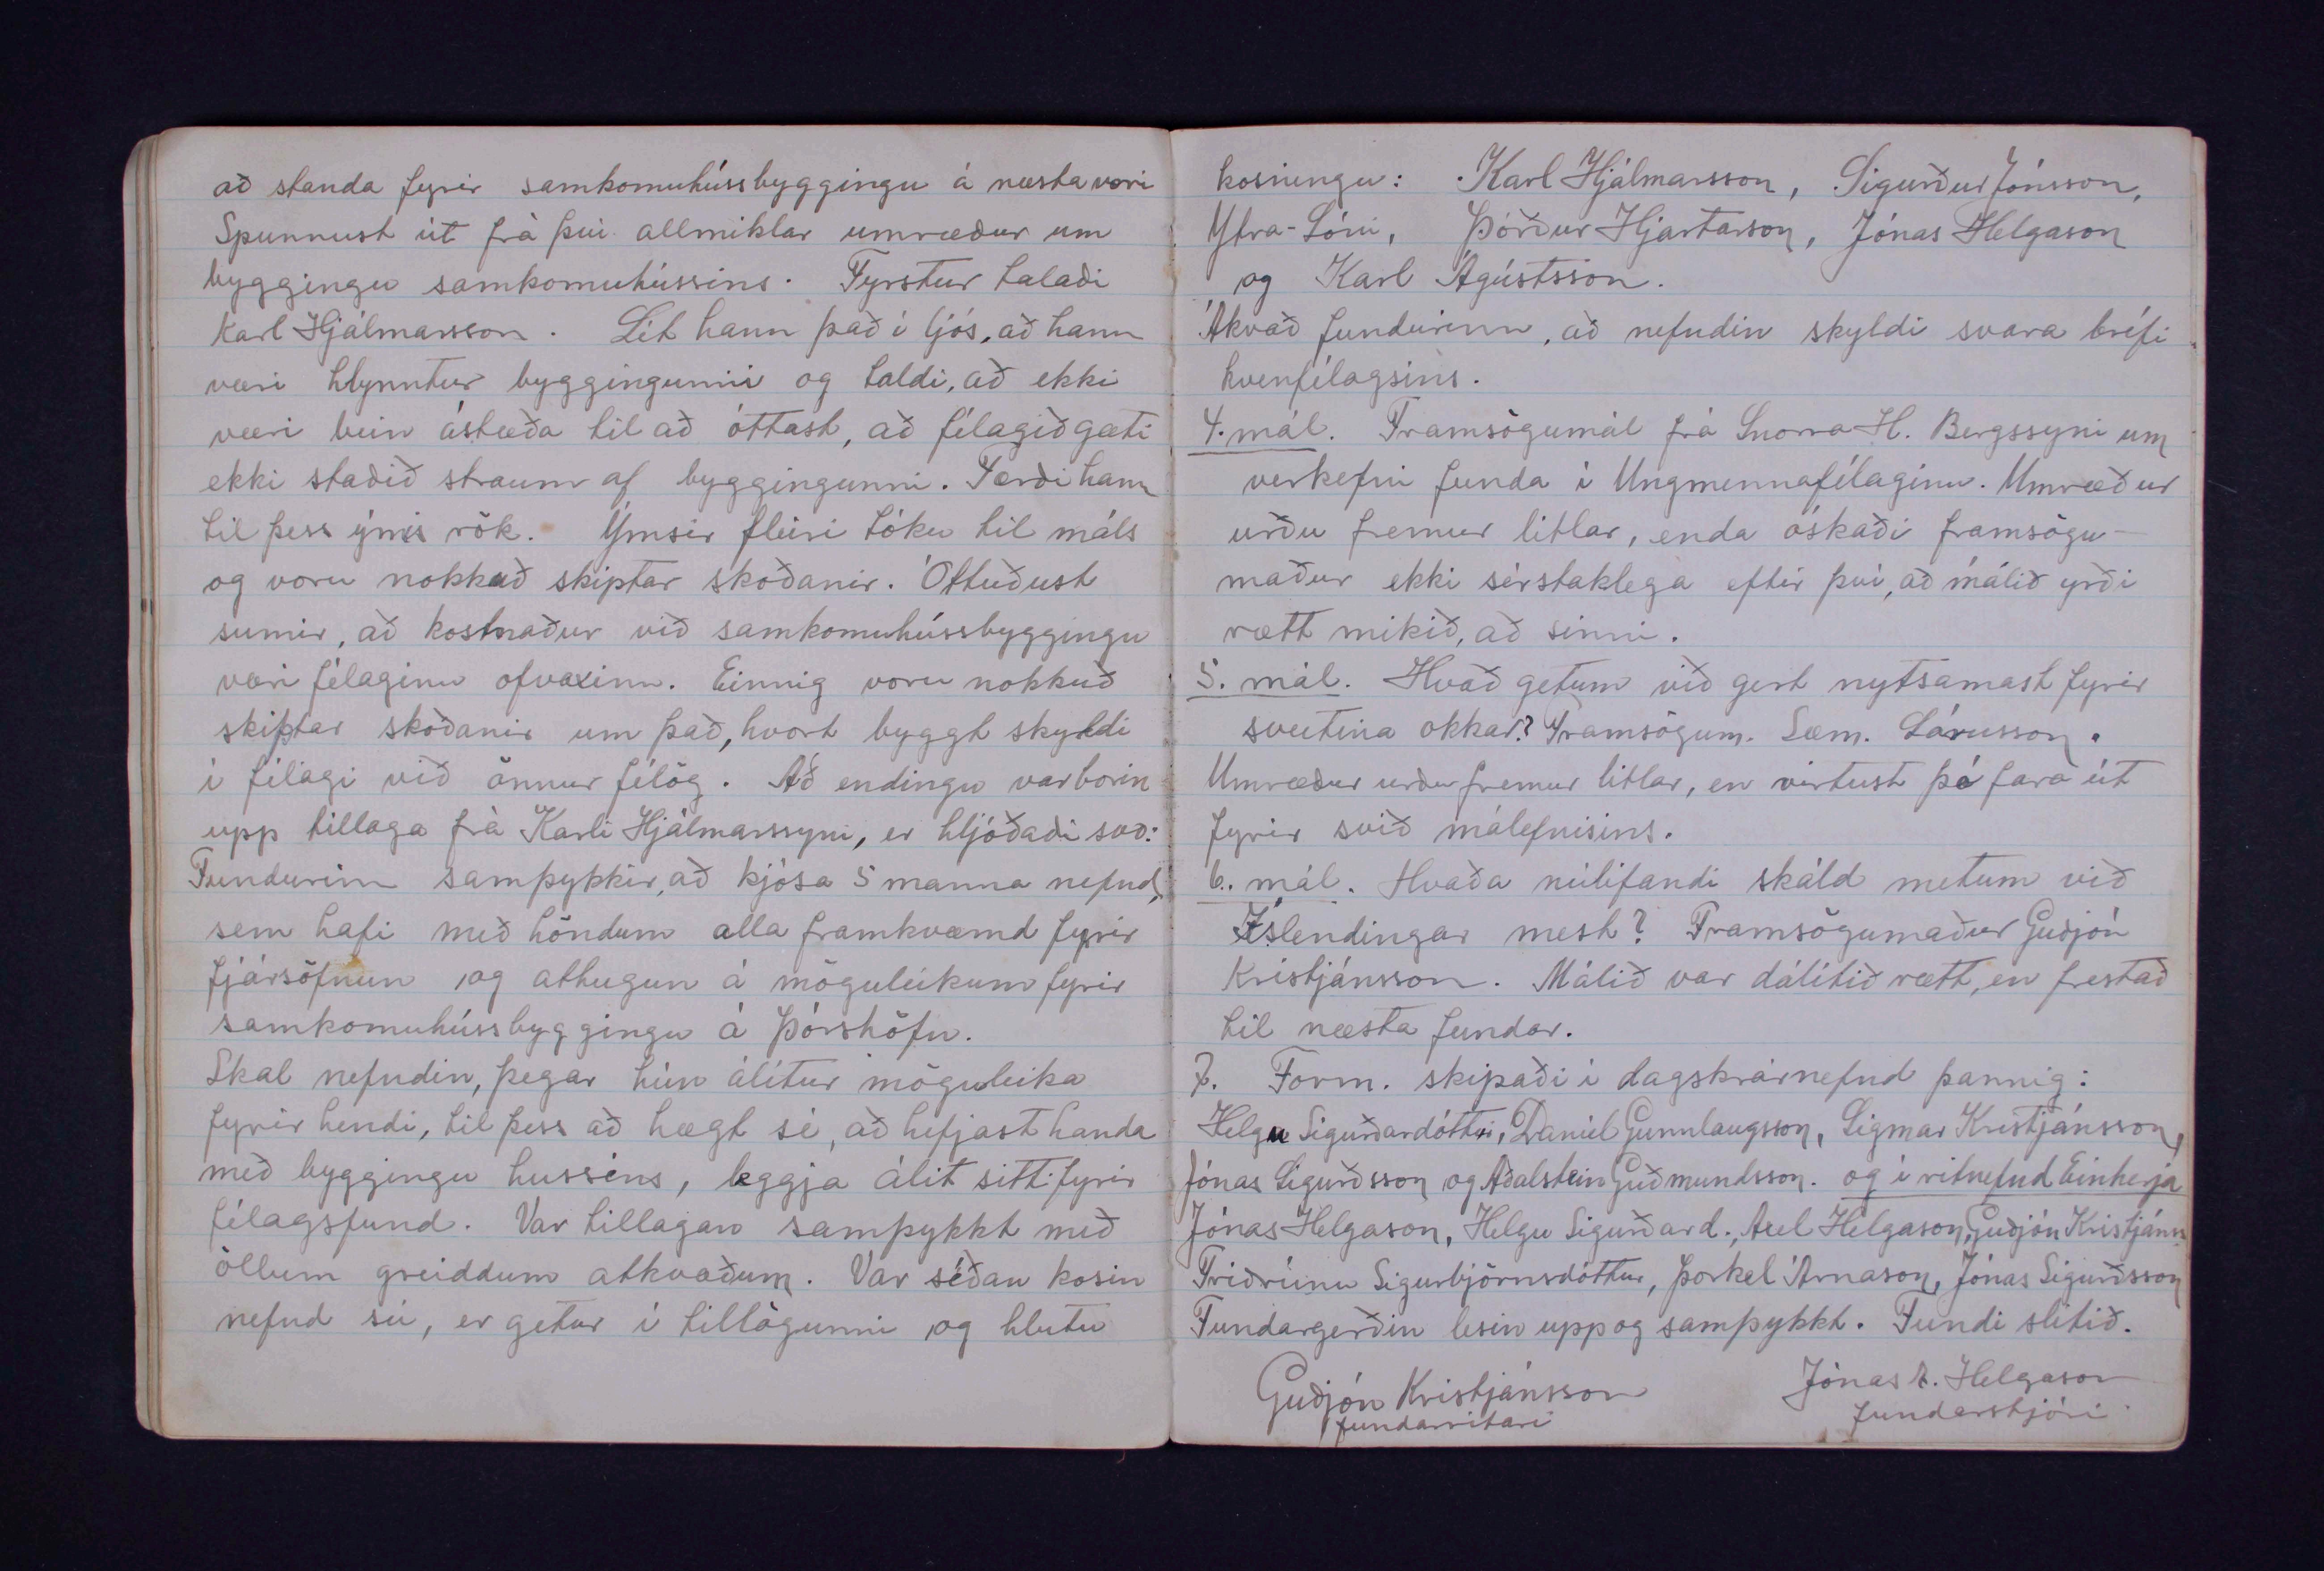 að standa fyrir samkomuhússbyggingu á næsta vori
Spunnust út frá því allmiklar umræður um
byggingu samkomuhússins. Fyrstur talaði
Karl Hjálmarsson. Lét hann það í ljós, að hann
væri hlynntur byggingunni og taldi, að ekki
væri bein ástæða til að óttast, að félagið gæti
ekki staðið straum af byggingunni. Færði hann
til þess ýmis rök. Ýmsir fleiri tóku til máls
og voru nokkuð skiptar skoðanir. Óttuðust
sumir, að kostnaður við samkomuhússbyggingu
væri félaginu ofvaxinn. Einnig voru nokkuð
skiptar skoðanir um það, hvort byggt skyldi
í félagi við önnur félög. Að endingu var borin
upp tillaga frá Karli Hjálmarssyni, er hljóðaði svo:
Fundurinn samþykkir, að kjósa 5 manna nefnd,
sem hafi með höndum alla framkvæmd fyrir
fjársöfnun og athugun á möguleikum fyrir
samkomuhússbyggingu á Þórshöfn.
Skal nefndin, þegar hún álítur möguleika
fyrir hendi, til þess að hægt sé, að hefjast handa
með byggingu hussins, leggja álit sitt fyrir
félagsfund. Var tillagan samþykkt með
öllum greiddum atkvæðum. Var síðan kosin
nefnd sú, er getur í tillögunni og hlutu
kosningu: Karl Hjálmarsson, Sigurður Jónsson,
Ytra-Lóni, Þórður Hjartarson, Jónas Helgason
og Karl Ágústsson.
Ákvað fundurinn, að nefndin skyldi svara bréfi
kvenfélagsins.
4. mál. Framsögumál frá Snorra H. Bergssyni um
verkefni funda í Ungmennafélaginu. Umræður
urðu fremur litlar, enda óskaði framsögu-
maður ekki sérstaklega eftir því, að málið yrði
rætt mikið, að sinni.
5. mál. Hvað getum við gert nytsamast fyrir
sveitina okkar? Framsögum. Sæm. Lárusson.
Umræður urðu fremur litlar, en virtust þó fara út
fyrir svið málefnisins.
6. mál. Hvaða núlifandi skáld metum við
Íslendingar mest? Framsögumaður Guðjón
Kristjánsson. Málið var dálítið rætt, en frestað
til næsta fundar.
7. Form. skipaði í dagskrárnefnd þannig:
Helgu Sigurðardóttur, Daníel Gunnlaugsson, Sigmar Kristjánsson,
Jónas Sigurðsson og Aðalstein Guðmundsson. og í ritnefnd Einherja
Jónas Helgason, Helgu Sigurðard., Axel Helgason, Guðjón Kristjánss.
Friðrúnu Sigurbjörnsdóttur, Þorkel Árnason, Jónas Sigurðsson
Fundargerðin lesin upp og samþykkt. Fundi slitið.
Guðjón Kristjánsson
fundarritari
Jónas A. Helgason
fundarstjóri